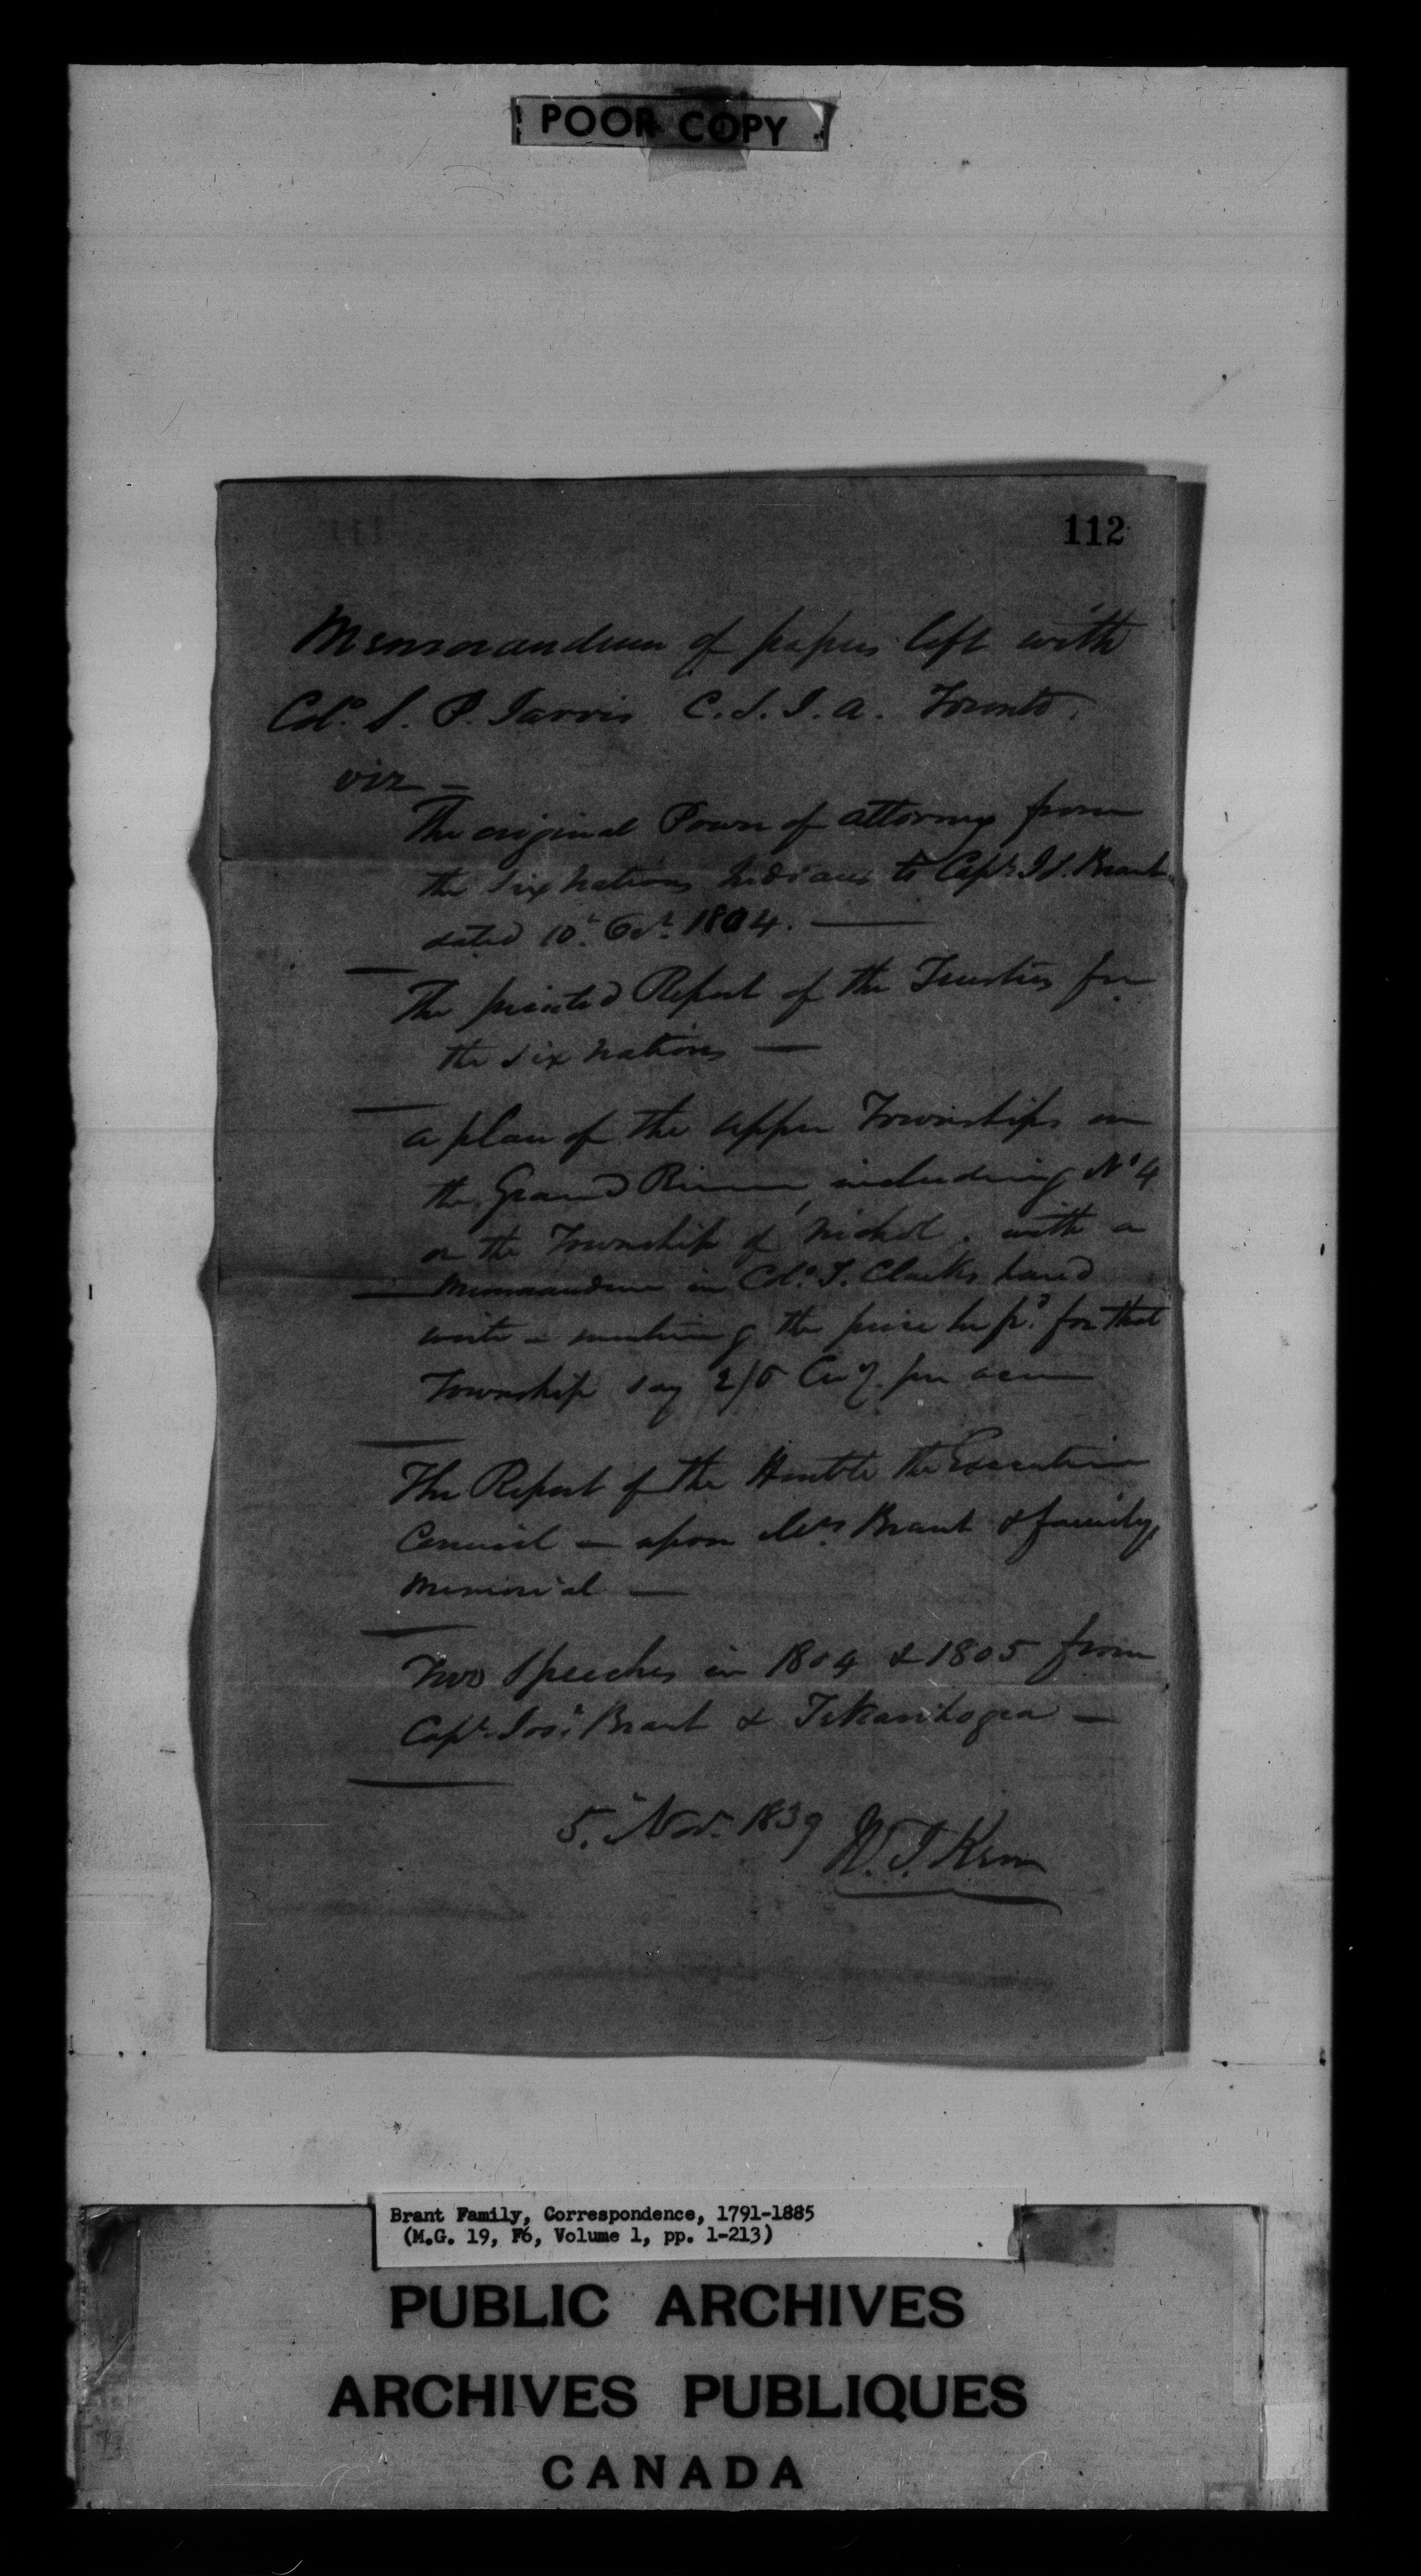 POOR COPY
112
Memorandum of papers left with
Colo. S. P. Jarvis C. S. I. A. Toronto.
viz —
The original Power of attorney from
the Six Nations Indians to Capt. Js. Brant
dated 10th Oct. 1804. —
The printed Report of the Trustees for
the Six Nations —
a plan of the upper Townships on
the Grand River, including No 4
or the Township of Nichol. with a
Memorandum in Colo. T. Clarks hand
write - the price he pd. for that
Township say 2/6 Cuy. per acre
The Report of the Honble the Executive
Council — upon Mrs Brant & family
Memorial —
Two Speeches in 1804 & 1805 from
Capt. Jos. Brant & Tekarihogea —
5th Nov. 1839 W. J. Kerr
Brant Family, Correspondence, 1791-1885
(M.G. 19, F6, Volume 1, pp. 1-213)
PUBLIC ARCHIVES
ARCHIVES PUBLIQUES
CANADA